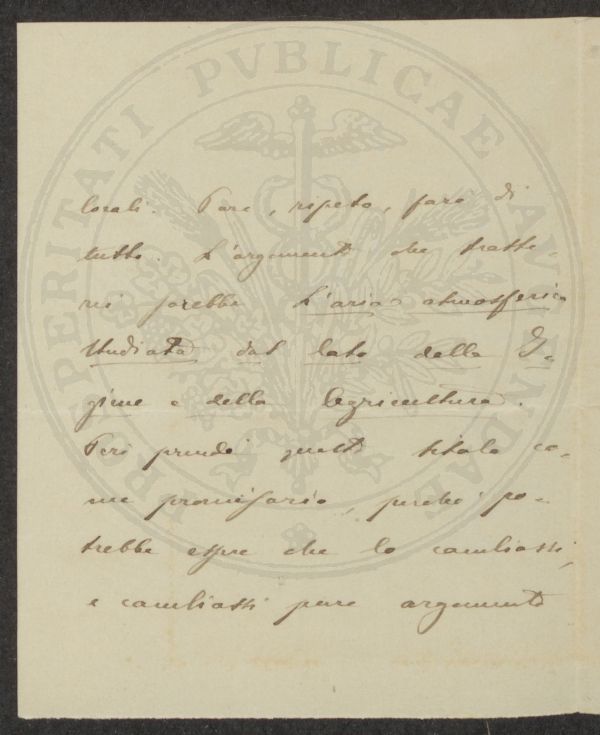 PROSPERITATI PVBLICAE AVGENDAE
locali. Pure, ripeto, farò di
tutto. L'argomento che tratte-
rei sarebbe L'aria atmosferica
studiata dal lato della I-
giene e della Agricultura.
Però prendi questo titolo co-
me provvisorio, perchè po-
trebbe essere che lo cambiassi,
e cambiassi pure argomento